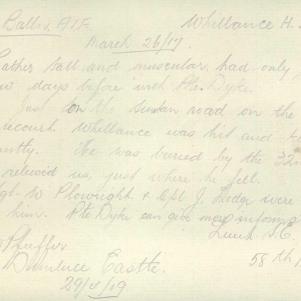 Battn A.I.F. Whillance H.
March 26/17
Rather tall and muscular, had only
days before with Pte. Dyke.
Just on the road on the
Whillance was hit and
He was buried by the 32n
relieved us, just where he fell.
Sgt. W. Plowright & Cpl J. were
him. Pte Dyke can give more inform
S.E.
58th
Dunluce Castle.
29/ /19